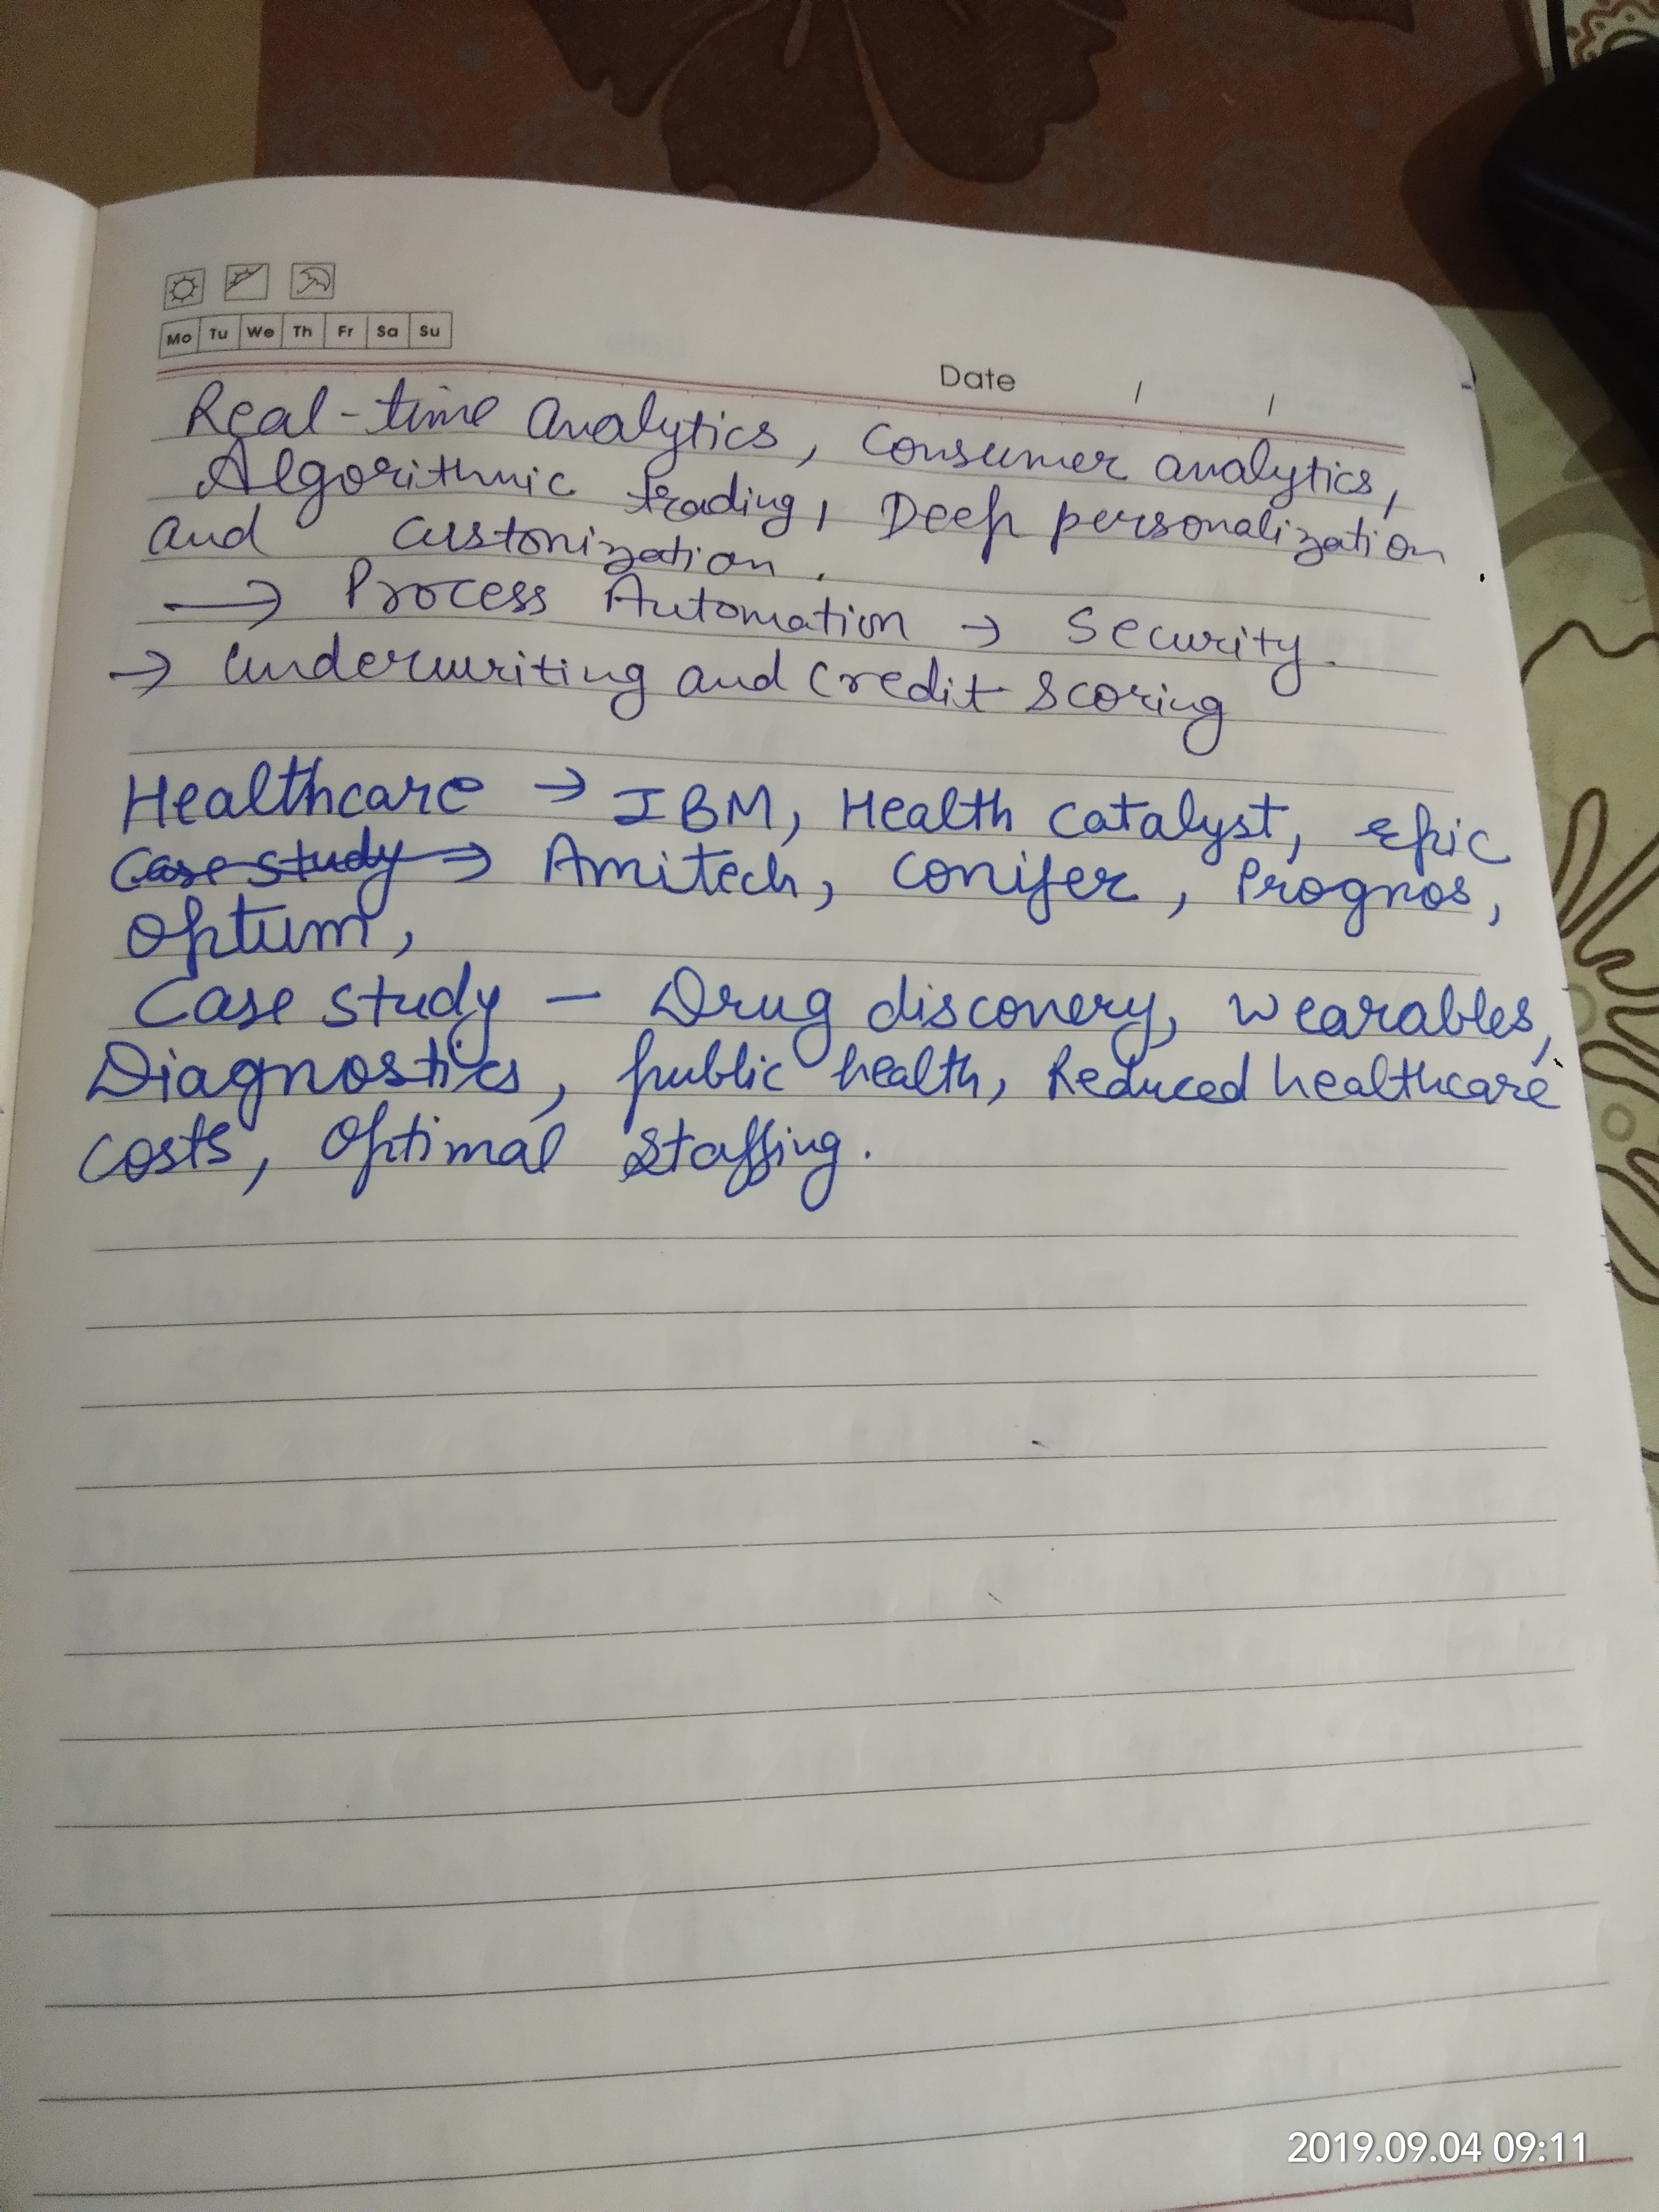 Mo Tu We Th Fr Sa Su
Date / /
Real-time analytics, Consumer analytics,
Algorithmic trading, Deep personalization
and customization.
→ Process Automation → Security.
→ Underwriting and Credit Scoring
Healthcare → IBM, Health Catalyst, epic
Case study → Amitech, Conifer, Prognos,
Optum,
Case study - Drug discovery, wearables,
Diagnostics, public health, Reduced healthcare
costs, Optimal Staffing.
2019.09.04 09:11